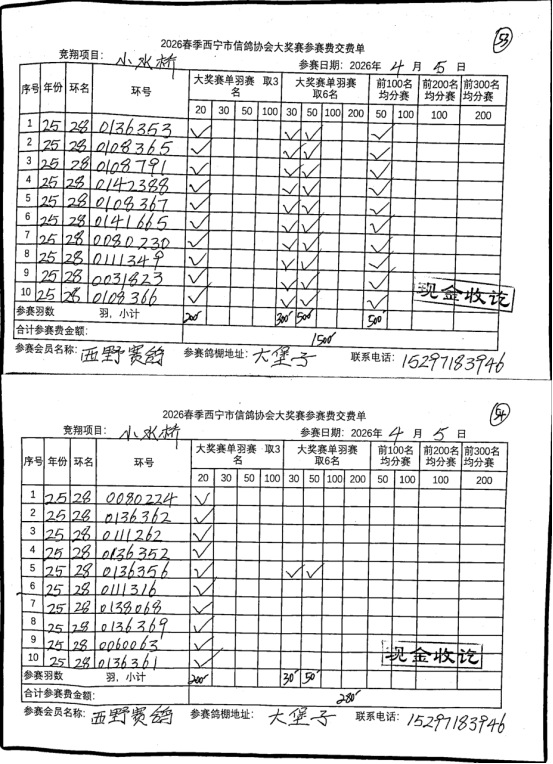 53
2026春季西宁市信鸽协会大奖赛参赛费交费单
竞翔项目： 小水桥 参赛日期：2026年 4 月 5 日
序号 年份 环名 环号 大奖赛单羽赛 取3名 大奖赛单羽赛 取6名 前100名均分赛 前200名均分赛 前300名均分赛
20 30 50 100 30 50 100 200 50 100 200
1 25 28 0136353 ✓ ✓ ✓ ✓
2 25 28 0108365 ✓ ✓ ✓ ✓
3 25 28 0108791 ✓ ✓ ✓ ✓
4 25 28 0142388 ✓ ✓ ✓ ✓
5 25 28 0108367 ✓ ✓ ✓ ✓
6 25 28 0141665 ✓ ✓ ✓ ✓
7 25 28 0080230 ✓ ✓ ✓ ✓
8 25 28 0111349 ✓ ✓ ✓ ✓
9 25 28 0031823 ✓ ✓ ✓ ✓
10 25 28 0108366 ✓ ✓ ✓ ✓
现金收讫
参赛羽数 羽，小计 200 300 500 500
合计参赛费金额： 1500
参赛会员名称： 西野赛鸽 参赛鸽棚地址： 大堡子 联系电话： 15297183946
54
2026春季西宁市信鸽协会大奖赛参赛费交费单
竞翔项目： 小水桥 参赛日期：2026年 4 月 5 日
序号 年份 环名 环号 大奖赛单羽赛 取3名 大奖赛单羽赛 取6名 前100名均分赛 前200名均分赛 前300名均分赛
20 30 50 100 30 50 100 200 50 100 200
1 25 28 0080224 ✓
2 25 28 0136362 ✓
3 25 28 0111262 ✓
4 25 28 0136352 ✓
5 25 28 0136356 ✓ ✓ ✓
6 25 28 0111316 ✓
7 25 28 0138068 ✓
8 25 28 0136369 ✓
9 25 28 0060063 ✓
10 25 28 0136361 ✓
现金收讫
参赛羽数 羽，小计 200 30 50
合计参赛费金额： 280
参赛会员名称： 西野赛鸽 参赛鸽棚地址： 大堡子 联系电话： 15297183946